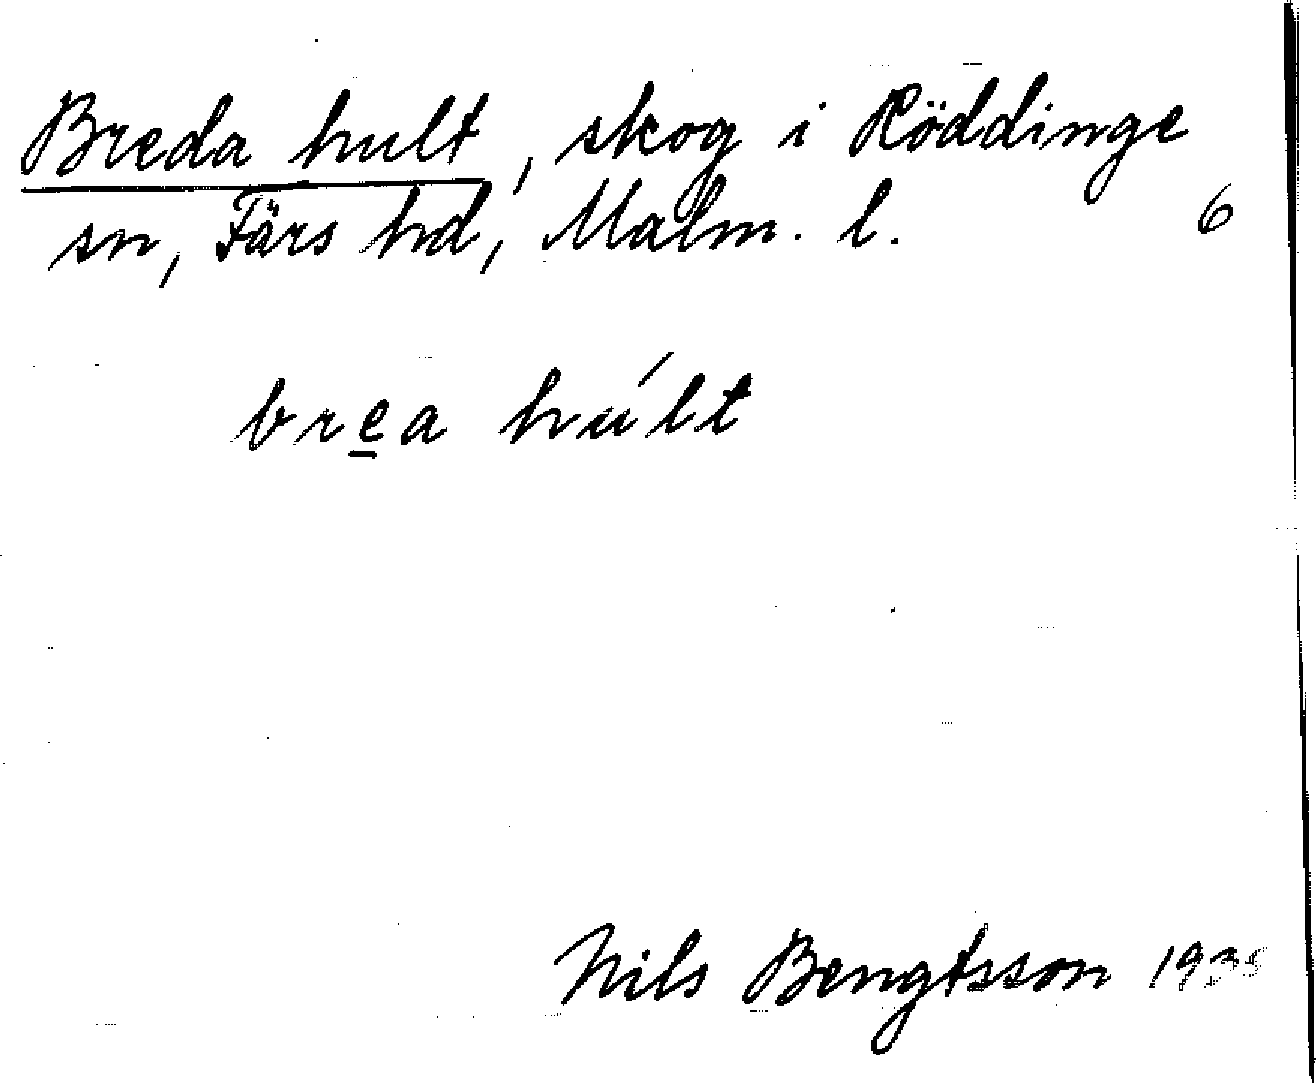 Breda hult, skog i Röddinge
sn, Färs hd, Malm. l. 6
brea húlt
Nils Bengtsson 1935